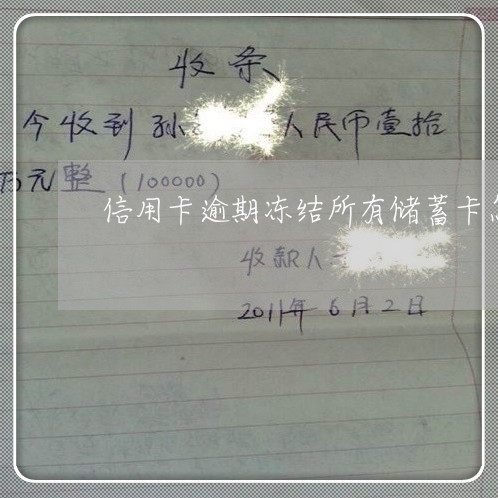 收条
今收到孙 人民币壹拾
万元整(100000)
信用卡逾期冻结所有储蓄卡
收款人
2011年6月2日